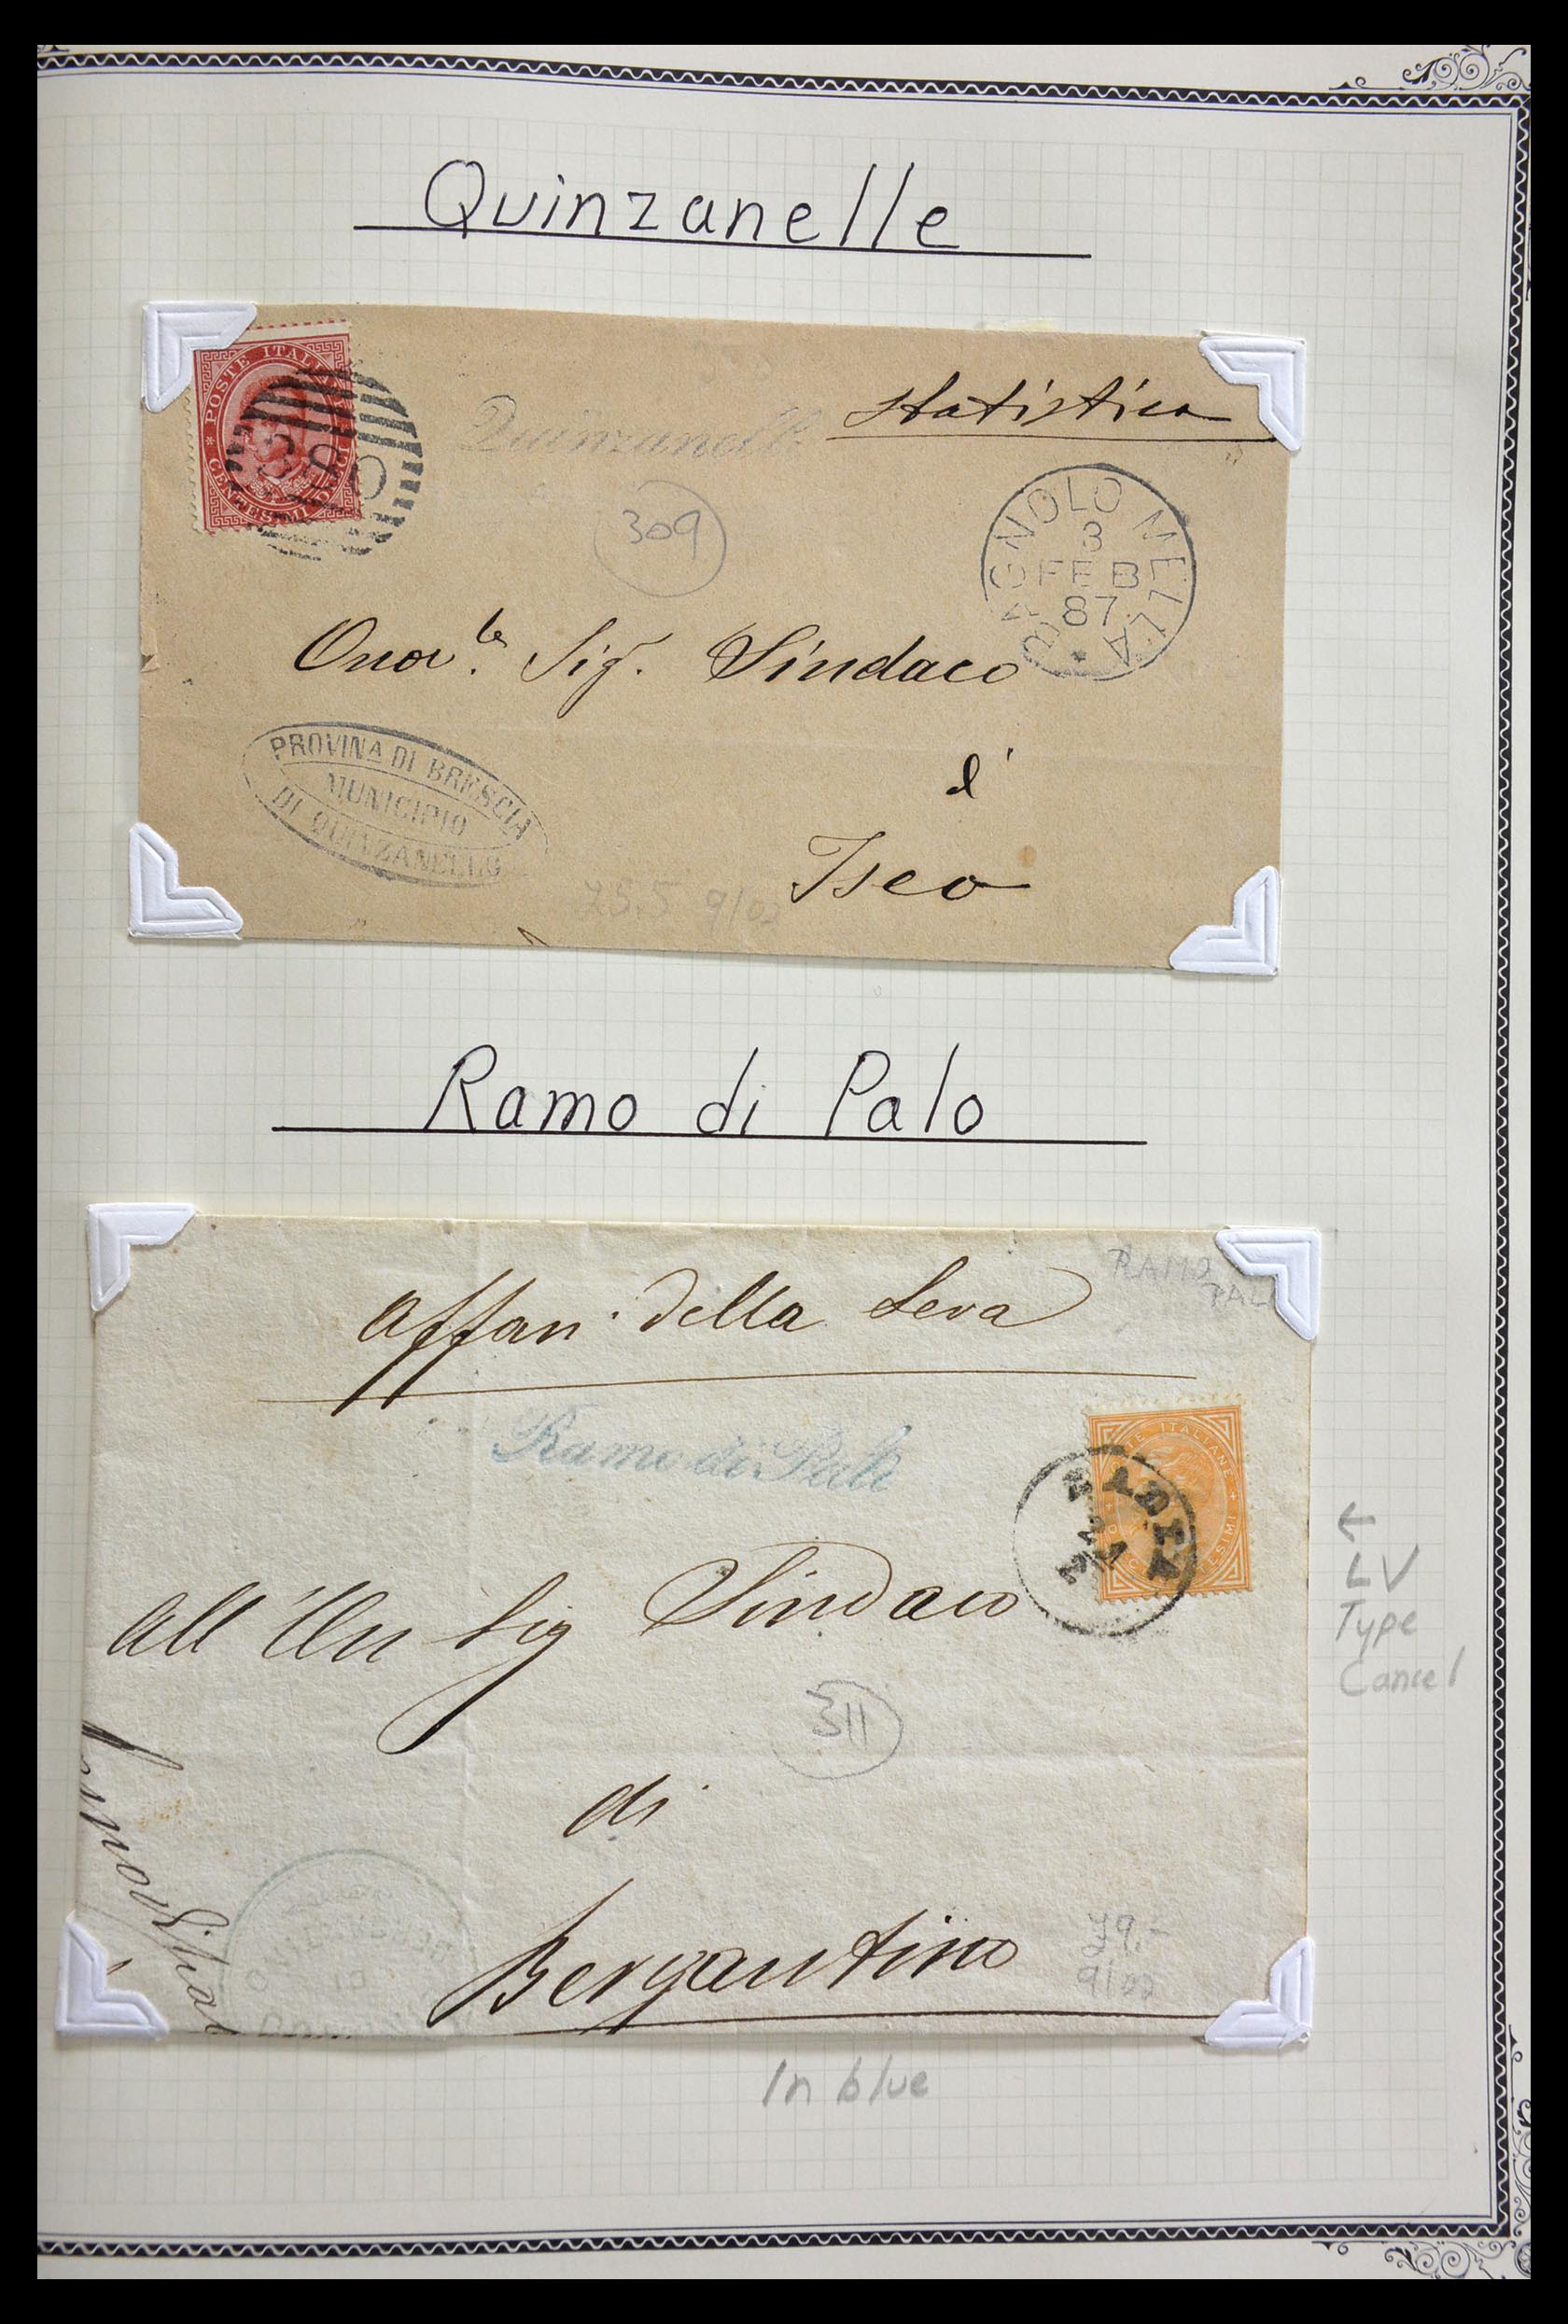 Quinzanelle
* POSTE ITALIANE *
CENTESIMI DIECI
Quinzanello
Statistica
309
BAGNOLO MELLA
3
FEB
87
*
Onor.le Sig. Sindaco
d'
Iseo
PROVINA DI BRESCIA
MUNICIPIO
DI QUINZANELLO
9/02
Ramo di Palo
RAMO
PAL
Affari della Leva
Ramo di Palo
ITALIANE
BADIA
All' Ill Sig Sindaco
←
LV
Type
Cancel
311
di
Bergantino
DI
79,-
9/02
In blue